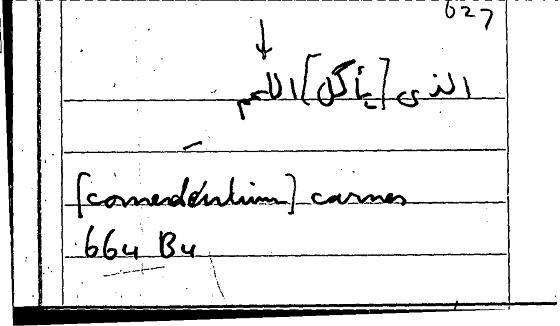 027
الذى [يأكل] اللحم
[comedentium] carnes
664 B4